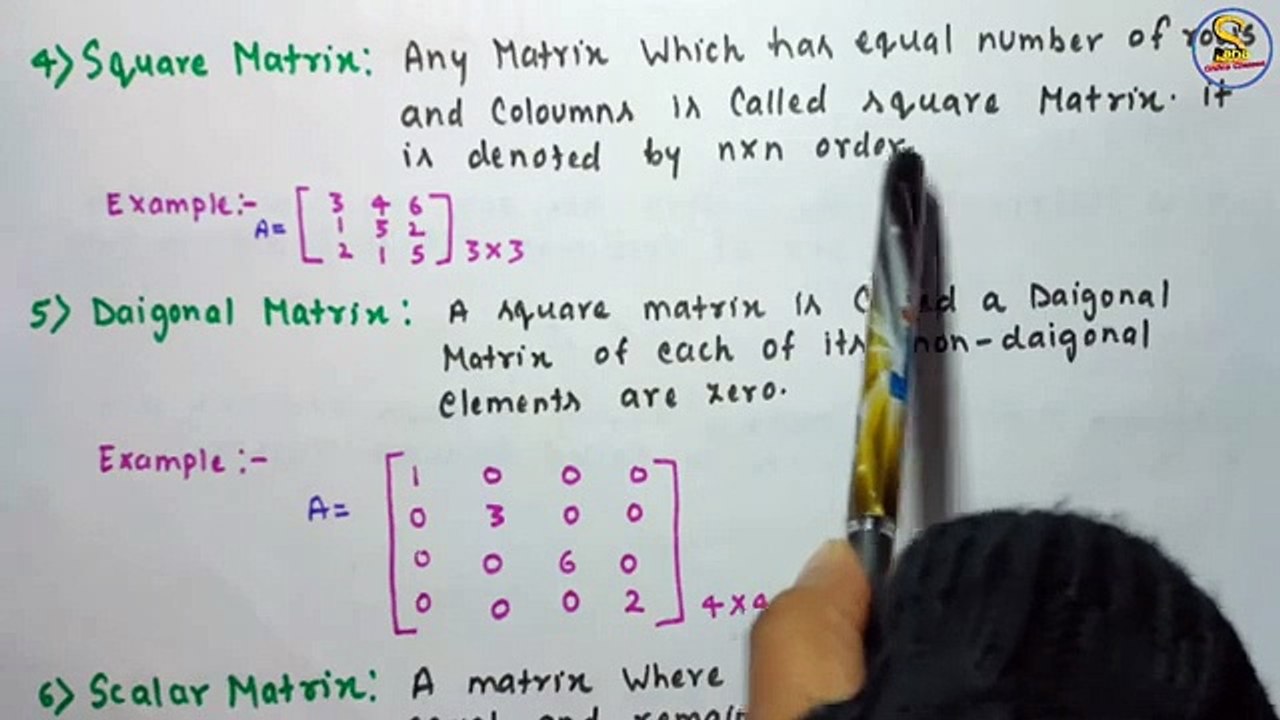 4) Square Matrix: Any Matrix Which has equal number of rows
and Coloumns is Called square Matrix. It
is denoted by nxn order.
Example:-
A= [ 3 4 6
1 5 2
2 1 5 ] 3×3
5) Daigonal Matrix: A square matrix is called a Daigonal
Matrix of each of its non-daigonal
elements are zero.
Example:-
A= [ 1 0 0 0
0 3 0 0
0 0 6 0
0 0 0 2 ] 4×4
6) Scalar Matrix: A matrix Where
equal and